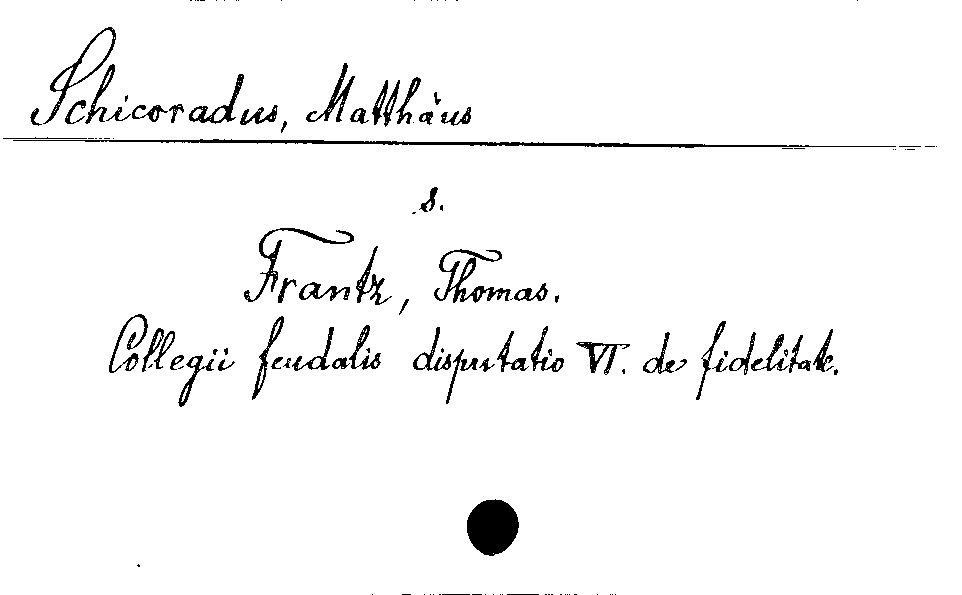 Schicoradus, Matthäus
s.
Frantz, Thomas.
Collegii feudalis disputatio VI. de fidelitate.